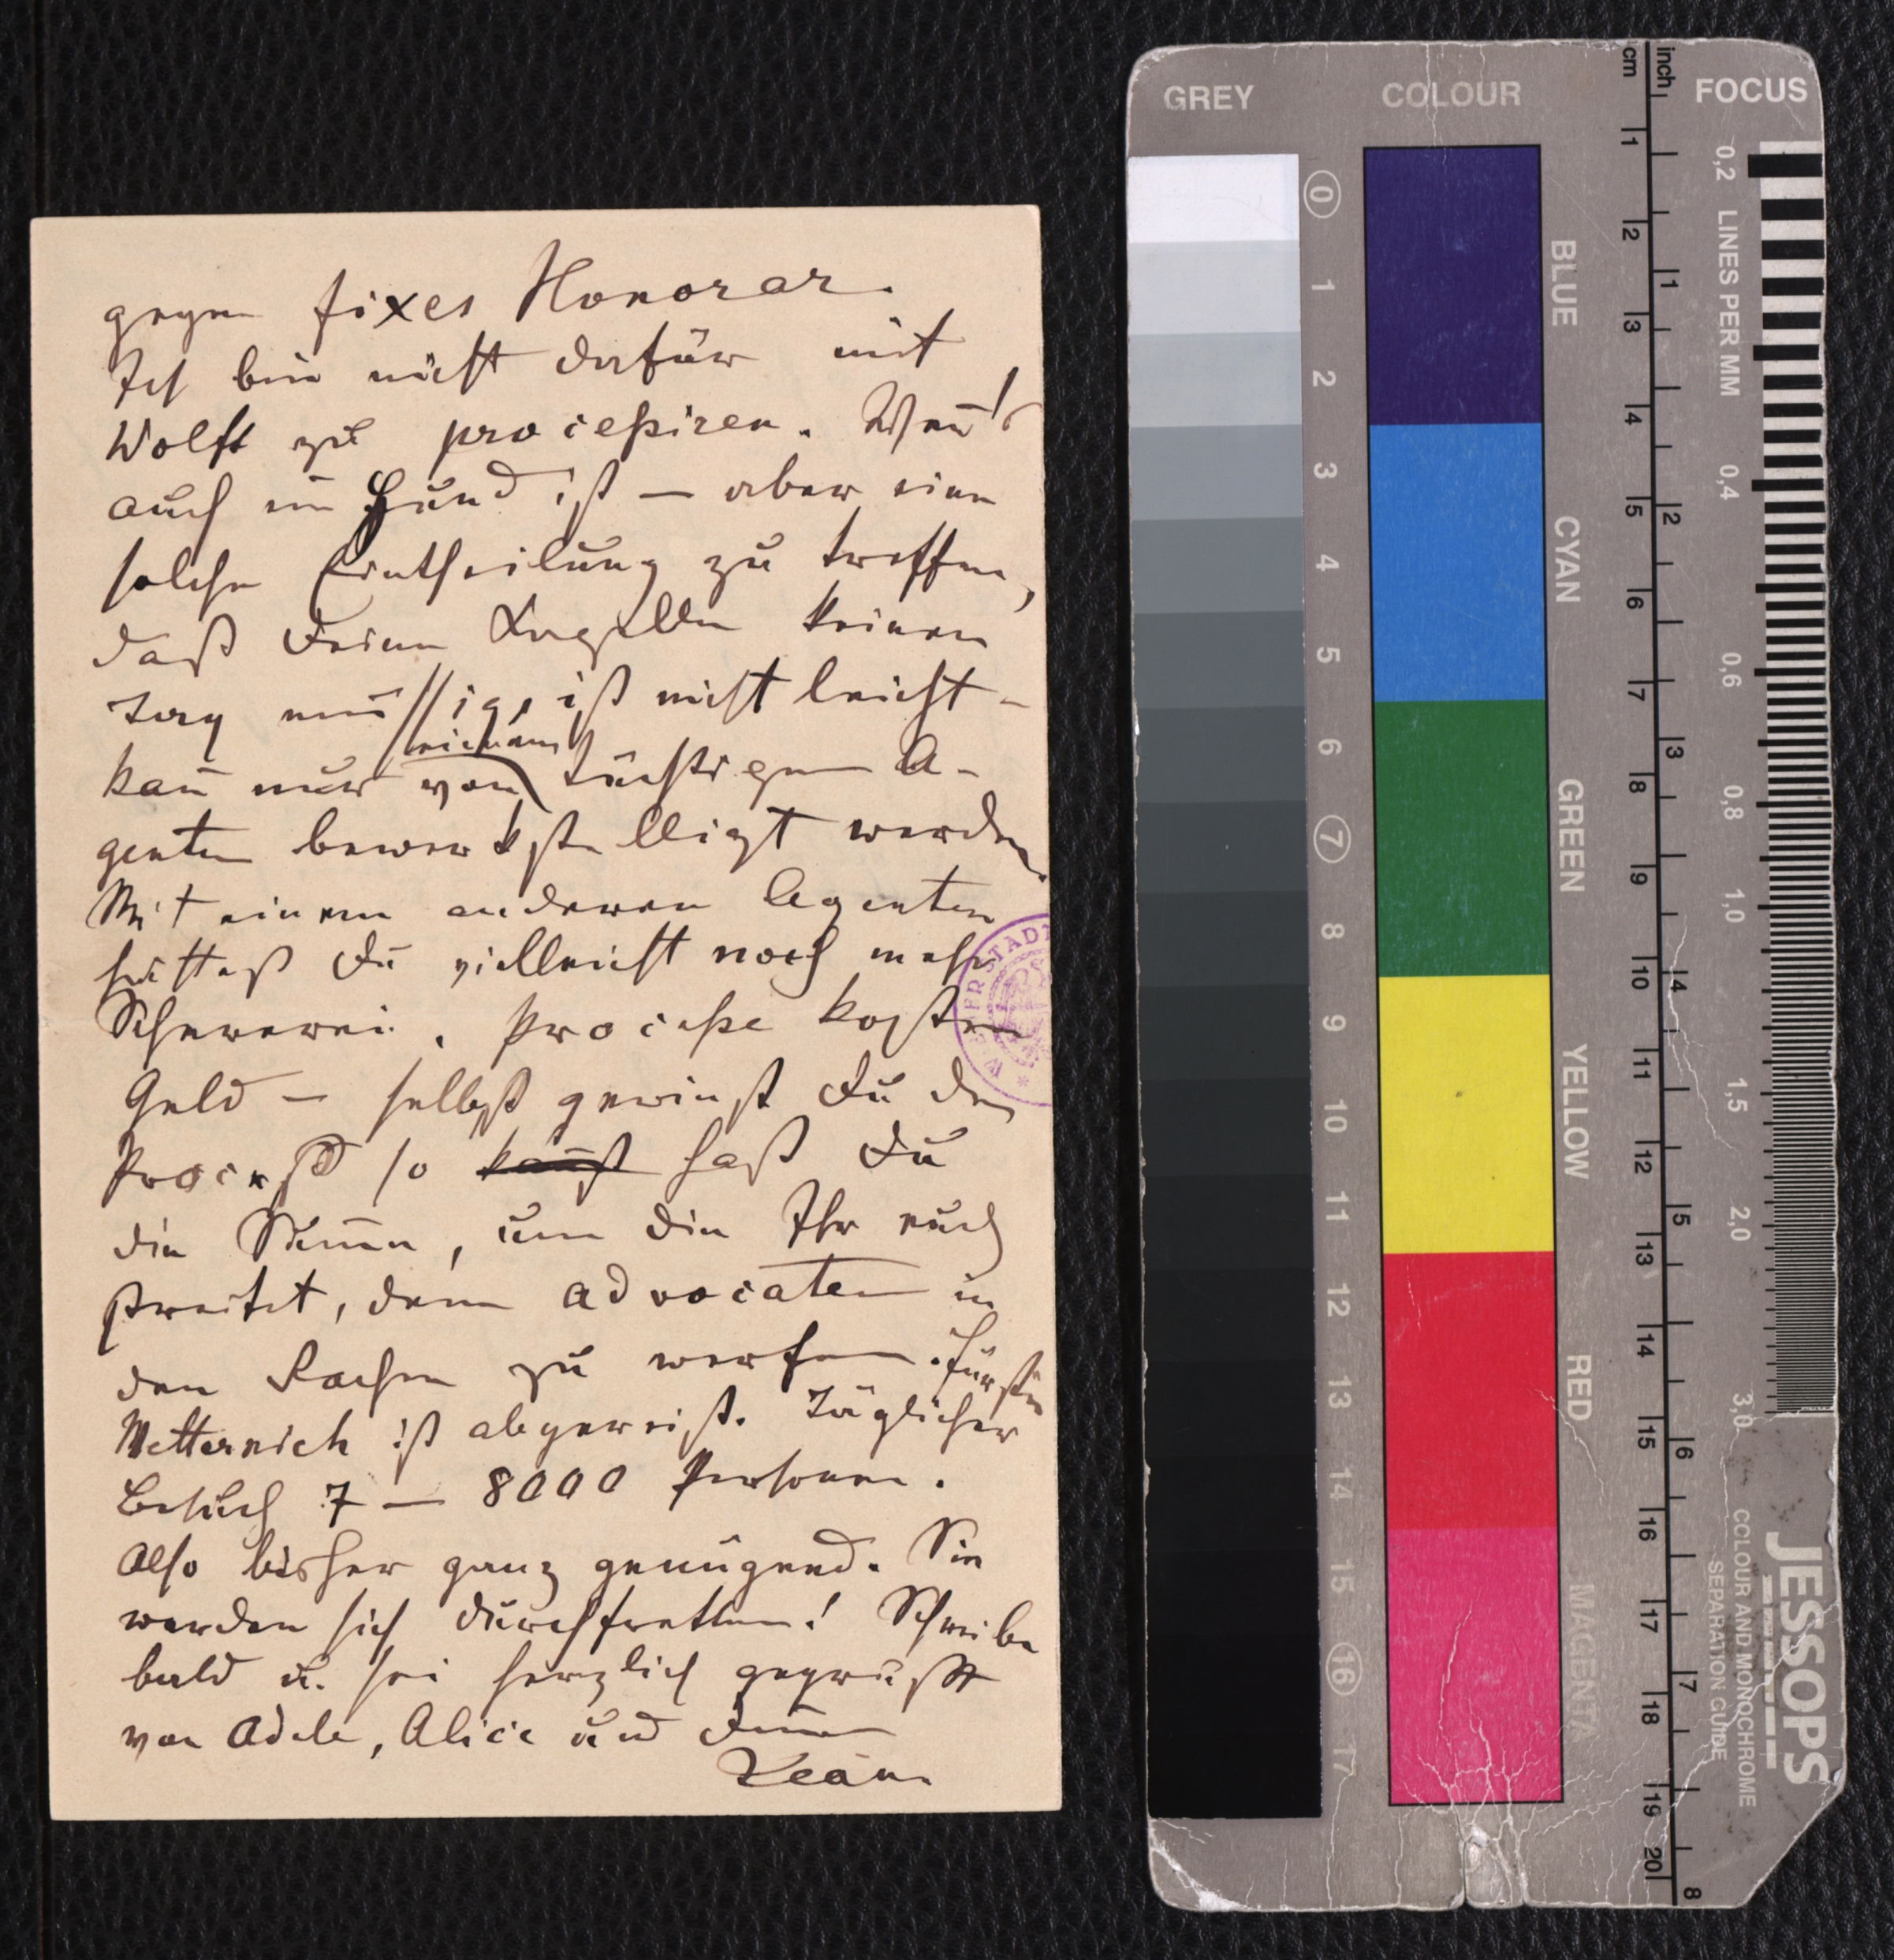 gegen fixes Honorar.
Ich bin nicht dafür mit
Wolff zu proceßiren. Wenn's
auch ein Hund ist — aber eine
solche Eintheilung zu treffen,
daß Deine Kapelle keinen
Tag müssig ist nicht leicht –
kann nur von einem tüchtigen A-
genten bewerkstelligt werden.
Mit einem anderen Agenten
hättest Du vielleicht noch mehr
Schererei. Proceße kosten
Geld — selbst gewinnst Du den
Proceß so kannst hast Du
die Summe, um die Ihr euch
streitet, dem Advocaten in
den Rachen zu werfen. Fürstin
Metternich ist abgereist. Täglicher
Besuch 7 — 8000 Personen.
Also bisher ganz genügend. Sie
werden sich durchfretten! Schreibe
bald u. sei herzlich gegrüßt
von Adele, Alice und Deinem
Jean.
GREY
COLOUR
FOCUS
cm
inch
0
1
2
3
4
5
6
7
8
9
10
11
12
13
14
15
16
17
BLUE
CYAN
GREEN
YELLOW
RED
MAGENTA
1
2
3
4
5
6
7
8
9
10
11
12
13
14
15
16
17
18
19
20
1
2
3
4
5
6
7
8
LINES PER MM
0,2
0,4
0,6
0,8
1,0
1,5
2,0
3,0
JESSOPS
COLOUR AND MONOCHROME
SEPARATION GUIDE